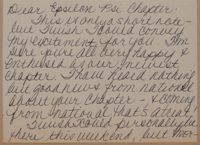 Dear Epsilon Psi Chapter:
This is only a short note -
but I wish I could convey
my excitement for you. I'm
sure you're all very happy &
enthused as our newest
chapter. I have heard nothing
but good news from national
about your chapter - & coming
from national that's a treat!
I wish I could personally be
there this weekend, but